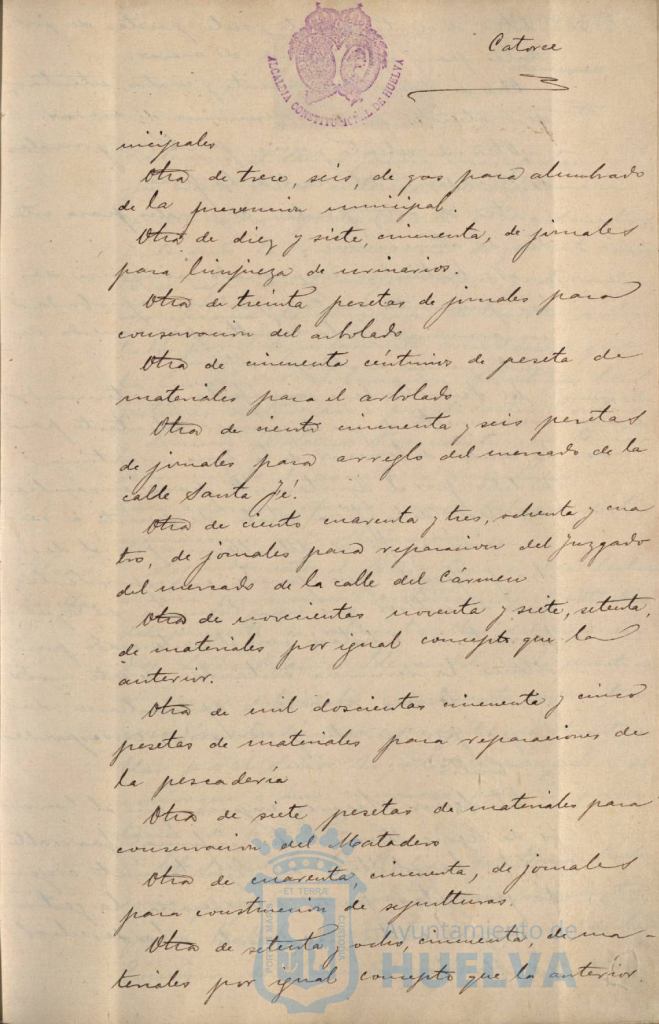 Catorce
ALCALDIA CONSTITUCIONAL DE HUELVA
nicipales
Otra de trece, seis, de gas para alumbrado
de la prevencion municipal.
Otra de diez y siete, cincuenta, de jornales
para limpieza de urinarios.
Otra de treinta pesetas de jornales para
conservacion del arbolado
Otra de cincuenta céntimos de peseta de
materiales para el arbolado
Otra de ciento cincuenta y seis pesetas
de jornales para arreglo del mercado de la
calle Santa Fé.
Otra de ciento cuarenta y tres, ochenta y cua
tro, de jornales para reparacion del Juzgado
del mercado de la calle del Cármen
Otra de novecientas noventa y siete, setenta,
de materiales por igual concepto que la
anterior.
Otra de mil doscientas cincuenta y cinco
pesetas de materiales para reparaciones de
la pescadería
Otra de siete pesetas de materiales para
conservacion del Matadero
Otra de cuarenta, cincuenta, de jornales
para construcion de sepulturas.
Otra de setenta y ocho, cincuenta, de ma-
teriales por igual concepto que la anterior.
PORTUS MARIS ET TERRÆ CUSTODIA
Ayuntamiento de
HUELVA